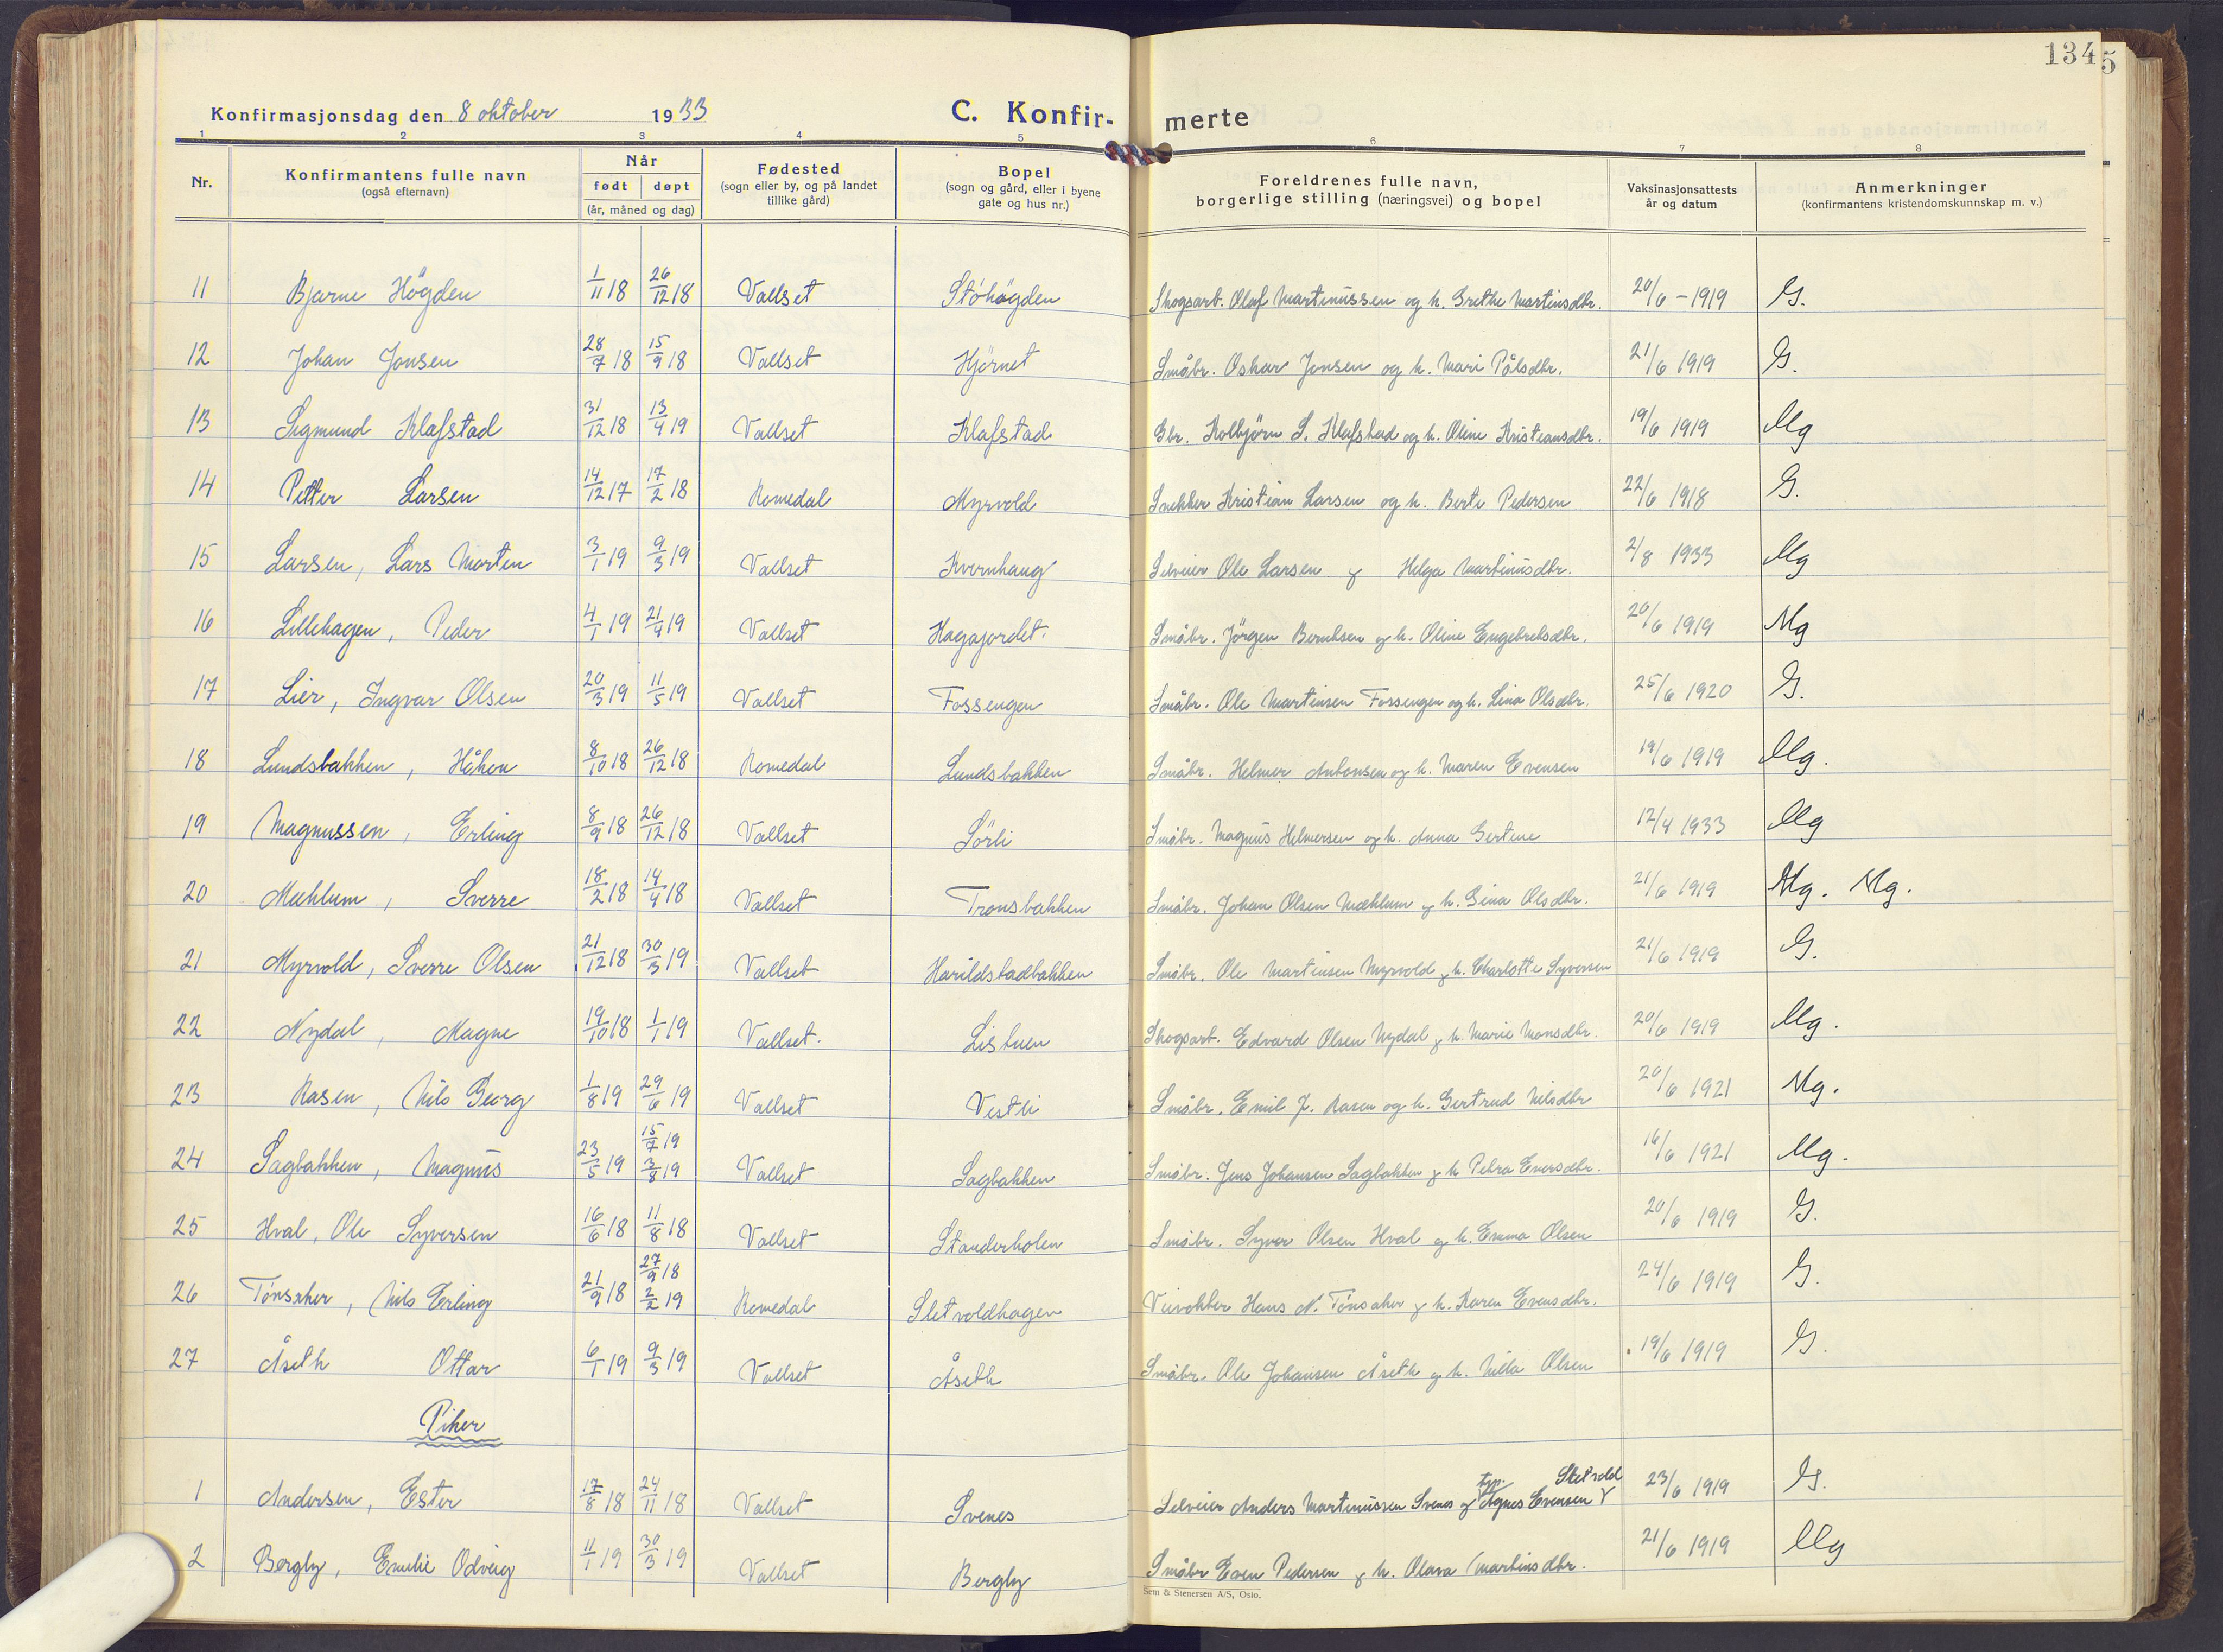 134
5
Konfirmasjonsdag den 8 oktober 1933 C. Konfir- merte
1 2 3 4 5 6 7 8
Nr. Konfirmantens fulle navn (også efternavn) Når født døpt (år, måned og dag) Fødested (sogn eller by, og på landet tillike gård) Bopel (sogn og gård, eller i byene gate og hus nr.) Foreldrenes fulle navn, borgerlige stilling (næringsvei) og bopel Vaksinasjonsattests år og datum Anmerkninger (konfirmantens kristendomskunnskap m. v.)
11 Bjarne Högden 1/11 18 26/12 18 Vallset Stóhögden Skogsarb. Olaf Martinussen og h. Grethe Martinsdtr. 20/6 - 1919 G.
12 Johan Jonsen 28/7 18 15/9 18 Vallset Hjörnet Småbr. Oskar Jonsen og h. Mari Pålsdtr. 21/6 1919 G.
13 Sigmund Klafstad 31/12 18 13/4 19 Vallset Klafstad Gbr. Kolbjörn S. Klafstad og h. Oline Kristiansdtr. 19/6 1919 Mg
14 Petter Larsen 14/12 17 17/2 18 Romedal Myrvold Snekker Kristian Larsen og h. Berte Pedersen 22/6 1918 G.
15 Larsen, Lars Morten 3/1 19 9/3 19 Vallset Kvernhaug Selveier Ole Larsen og Helga Martinusdtr. 2/8 1933 Mg
16 Lillehagen, Peder 4/1 19 21/4 19 Vallset Hagajordet. Småbr. Jörgen Berntsen og h. Oline Engebretsdtr. 20/6 1919 Mg
17 Lier, Ingvar Olsen 20/3 19 11/5 19 Vallset Fossengen Småbr. Ole Martinsen Fossengen og h. Lina Olsdtr. 25/6 1920 G.
18 Lundsbakken, Håkon 8/10 18 26/12 18 Romedal Lundsbakken Småbr. Helmer Antonsen og h. Maren Evensen 19/6 1919 Mg.
19 Magnussen, Erling 8/9 18 26/12 18 Vallset Sörli Småbr. Magnus Helmersen og h. Anna Gertine 12/4 1933 Mg
20 Mæhlum, Sverre 18/2 18 14/4 18 Vallset Tronsbakken Småbr. Johan Olsen Mæhlum og h. Gina Olsdtr. 21/6 1919 Mg. Mg.
21 Myrvold, Sverre Olsen 21/12 18 30/3 19 Vallset Harildstadbakken Småbr. Ole Martinsen Myrvold og h. Charlotte Syversen 21/6 1919 G.
22 Nydal, Magne 19/10 18 1/1 19 Vallset. Listuen Skogsarb. Edvard Olsen Nydal og h. Marie Monsdtr. 20/6 1919 Mg.
23 Rasen, Nils Georg 1/8 19 29/6 19 Vallset Vestli Småbr. Emil J. Rasen og h. Gertrud Nilsdtr 20/6 1921 Mg.
24 Sagbakken, Magnus 23/5 19 15/7 19 3/8 19 Vallset Sagbakken Småbr. Jens Johansen Sagbakken og h Petra Eversdtr. 16/6 1921 Mg.
25 Hval, Ole Syversen 16/6 18 11/8 18 Vallset Standerholen Småbr. Syver Olsen Hval og h. Emma Olsen 20/6 1919 G.
26 Tönsaker, Nils Erling 21/9 18 27/9 18 2/2 19 Romedal Sletvoldhagen Veivokter Hans N. Tönsaker og h. Karen Evensdtr. 24/6 1919 G.
27 Åseth Ottar 6/1 19 9/3 19 Vallset Åseth Småbr. Ole Johansen Åseth og h. Nilla Olsen 19/6 1919 G.
Piker
1 Andersen, Ester 17/8 18 24/11 18 Vallset Svenes Selveier Anders Martinussen Svenes og tyj. Agnes Evensen Sletvold 23/6 1919 G.
2 Bergby, Emilie Odveig 11/1 19 30/3 19 Vallset Bergby Småbr Even Pedersen og h. Olava Martinsdtr. 21/6 1919 Mg
Sem & Stenersen A/S, Oslo.